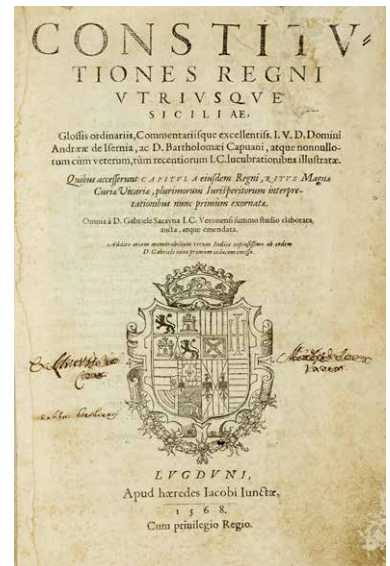 CONSTITV-
TIONES REGNI
VTRIVSQVE
SICILIAE,
Glossis ordinariis, Commentariisque excellentiss. I. V. D. Domini
Andreæ de Isernia, ac D. Bartholomæi Capuani, atque nonnullo-
rum cùm veterum, tùm recentiorum I.C. lucubrationibus illustratæ.
Quibus accesserunt CAPITVLA eiusdem Regni, RITVS Magnæ
Curiæ Vicariæ, plurimorum Iurisperitorum interpre-
tationibus nunc primùm exornatæ.
Omnia à D. Gabriele Sarayna I.C. Veronensi summo studio elaborata,
aucta, atque emendata.
Addito etiam memorabilium rerum Indice copiosissimo ab eodem
D. Gabriele nunc primùm in lucem emisso.
LVGDVNI,
Apud hæredes Iacobi Iunctæ,
1568.
Cum priuilegio Regio.